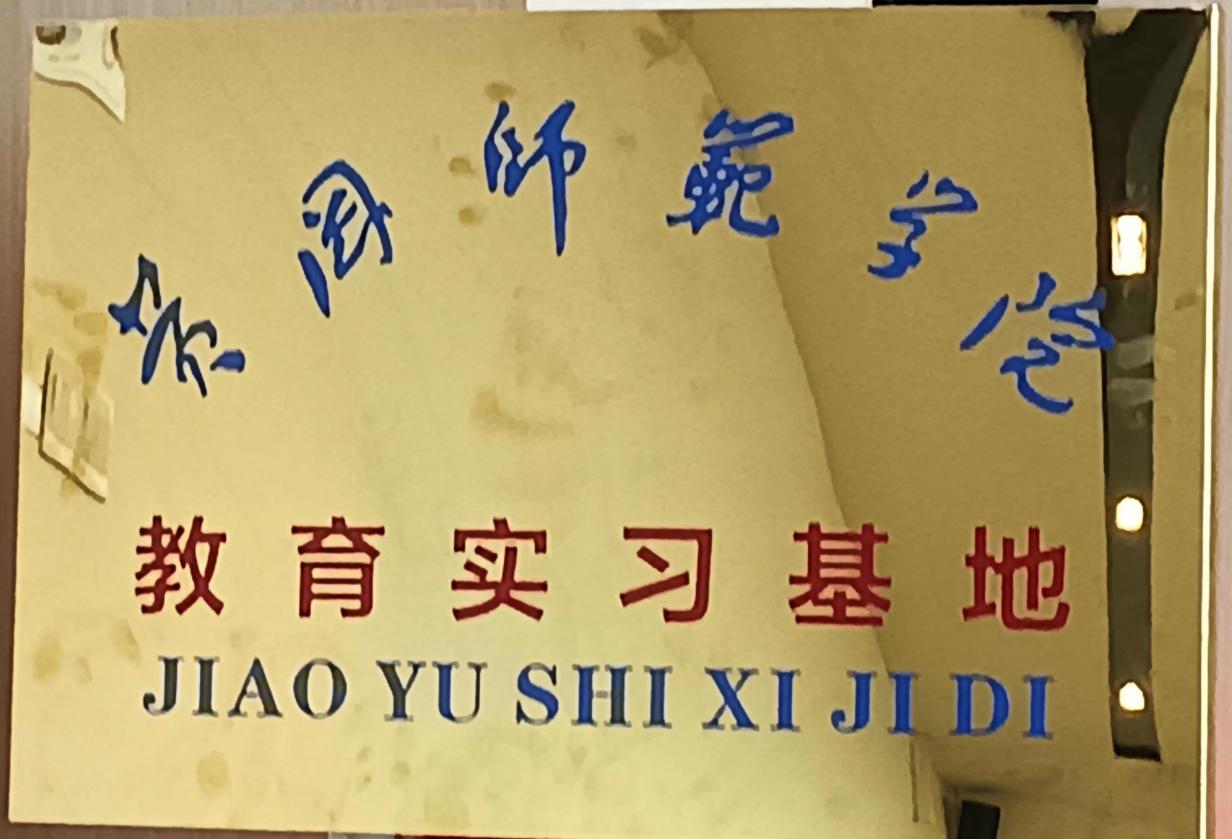 黄岡師範学院
教育实习基地
JIAO YU SHI XI JI DI